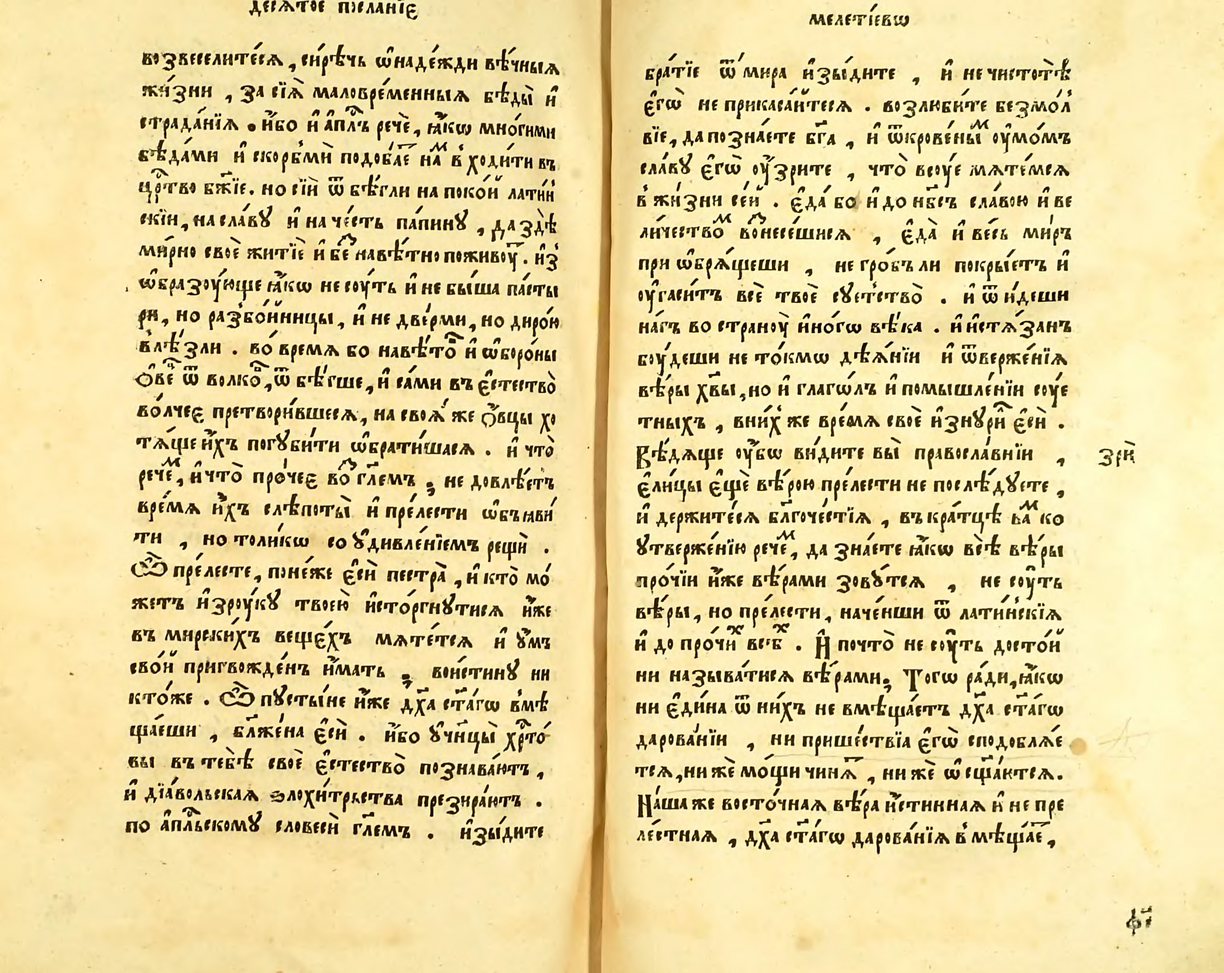 десѧтое пѡсланїє
возвеселитеся, си́рѣчь ѡ҆наде́жди вѣ́чныѧ
жи́зни , за сїѧ̀ маловре́менныѧ бѣды̀ и҆
страда́нїѧ . и҆́бо и҆ а҆пл҃ъ речѐ, ꙗ҆́кѡ мно́гими
бѣда́ми и҆ ско́рбьми подоба́е на́м в ходи́ти въ
црⷭ҇тво бж҃їе. но сїѝ ѿ бѣ́гли на поко́й лати́н
скїи, на сла́вꙋ и҆ на че́сть па́пинꙋ , да здѣ̀
ми́рно своѐ житїѐ и҆ бе навѣ́тно поживоу́т. и҆з̾
ѡ҆бразоу́юще ꙗ҆́кѡ не соу́ть и҆ не бы́ша па́сты
ри, но разбо́йницы, и҆ не две́рми, но дирою
влѣ́зли . во́ время бо навѣ́то и҆ ѡ҆боро́ны
ѻ҆ве́ ѿ волко́, ѿ бѣ́гше, и҆ са́ми въ є҆стество̀
во́лчеє претвори́вшеся, на своѧ́ же ѻ҆́вцы хо
тѧ́ще и҆́хъ погꙋби́ти ѡ҆брати́шася . и҆ что̀
рече́м, и҆ что̀ про́чеє во гл҃емъ ; не довлѣ́етъ
вре́мѧ и҆́хъ слѣпоты̀ и҆ пре́лести ѡ҆бъꙗви́
ти , но толи́кѡ со ᲂу҆дивле́нїемъ рещѝ .
Ѽ пре́лесте, поне́же є҆сѝ пестра̀, и҆ кто̀ мо́
жетъ и҆зроу́кꙋ твоею̀ и҆сто́ргнꙋтися и҆́же
въ мирски́хъ веще́хъ мѧте́тся и҆ ᲂу҆́мъ
сво́й пригвожде́нъ и҆́мать ; вои́стинꙋ ни
кто́же . Ѽ пꙋсты́не и҆́же дх҃а ст҃а́гѡ вмѣ
ща́еши , блж҃е́на є҆сѝ . и҆́бо ᲂу҆чн҃цы̀ хрⷭ҇то́
вы въ тебѣ̀ своѐ є҆стество̀ познава́ютъ ,
и҆ дїа́вольскаѧ ѕлохи́трьства презира́ютъ .
по а҆пл҃ьскомꙋ словесѝ гл҃емъ . и҆зы́дите
мелетїевѡ
бра́тїе ѿ ми́ра и҆зы́дите , и҆ не чистотѣ̀
є҆гѡ̀ не прикаса́йтеся . возлюби́те безмо́л
вїе, да позна́ете бг҃а , и҆ ѿкрове́ны́м оу҆мо́мъ
сла́вꙋ є҆гѡ̀ оу҆́зрите , что̀ всоуе мѧте́мся
в жи́зни се́й . є҆да̀ бо и҆ до нб҃съ сла́вою и҆ ве
ли́чество́м вонесе́шися , є҆да̀ и҆ ве́сь ми́ръ
при ѡ҆брѧ́щеши , не гро́бъ ли покры́етъ и҆
оу҆гаси́тъ всѐ твоѐ сꙋ́етство . и҆ ѿ и҆́деши
на́гъ во страноу̀ и҆но́гѡ вѣ́ка . и҆ и҆стѧ́занъ
боу́деши не то́кмѡ дѣѧ́нїи и҆ ѿверже́нїѧ
вѣ́ры хв҃ы, но и҆ глаго́лъ и҆ помышле́нїи соуе
тныхъ , вни́х же вре́мѧ своѐ и҆знꙋри є҆сѝ .
Вѣ́дѧще оу҆́бѡ ви́дите вы̀ правосла́внїи ,
є҆ли́цы є҆щѐ вѣ́рою пре́лести не послѣ́дꙋете ,
и҆ держи́теся бл҃гоче́стїѧ , въ кра́тцѣ ва́м ко
ᲂу҆твержє́нїю рече́м, да зна́ете ꙗ҆́кѡ всѣ̀ вѣ́ры
про́чїи и҆́же вѣ́рами зовꙋ́тся , не соу́ть
вѣ́ры, но пре́лести, наче́нши ѿ лати́нскїѧ
и҆ до про́чи́х всѣ́х . И҆ почто̀ не соу́ть досто́й
ни называ́тися вѣ́рами; Тогѡ̀ ра́ди, ꙗ҆́кѡ
ни є҆ди́на ѿ ни́хъ не вмѣща́етъ дх҃а ст҃а́гѡ
дарова́нїи , ни прише́ствїа є҆гѡ̀ сподоблѧ́е
тся, ни жѐ мо́щи чинѧ́т , ни жѐ ѡ҆сщ҃а́ются.
На́ша же восто́чнаѧ вѣ́ра и҆́стиннаѧ и҆ не пре
ле́стнаѧ , дх҃а ст҃а́гѡ дарова́нїѧ в мѣща́е,
зрѝ